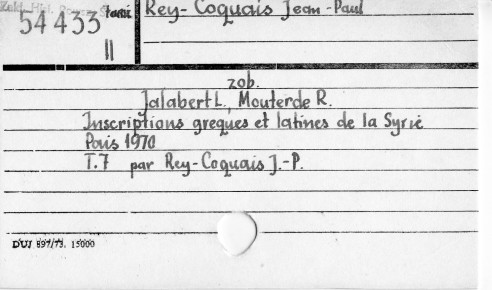 54433
II
Rey-Coquais Jean-Paul
zob.
Jalabert L., Mouterde R.
Inscriptions greques et latines de la Syrie
Paris 1970
T.7 par Rey-Coquais J.-P.
DUJ 897/73. 15000